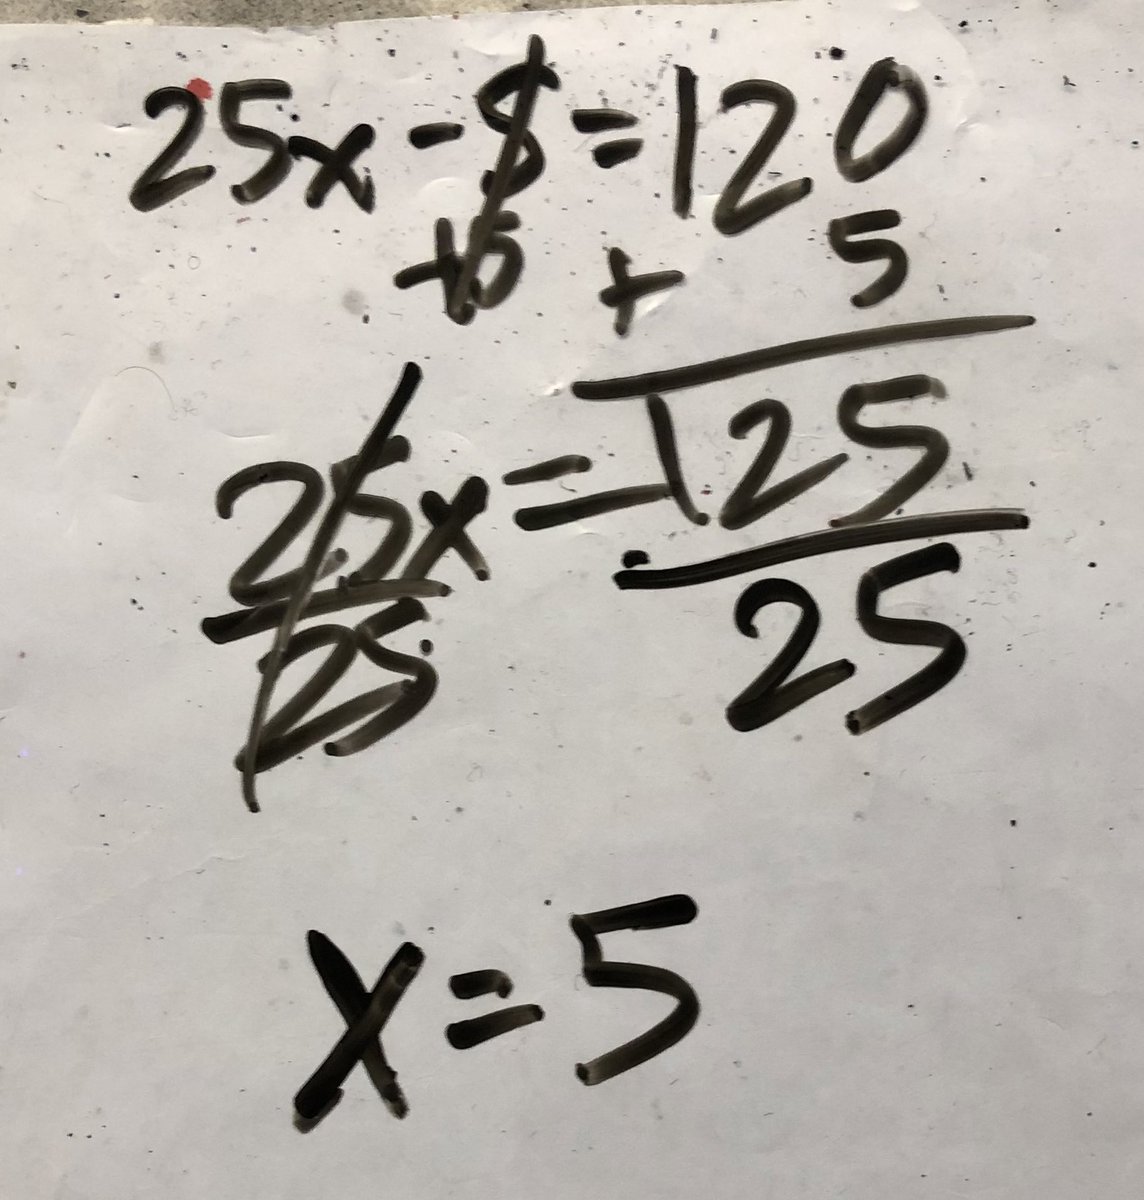 25x - 5 = 120
+5 + 5
25x = 125
25 25
x = 5